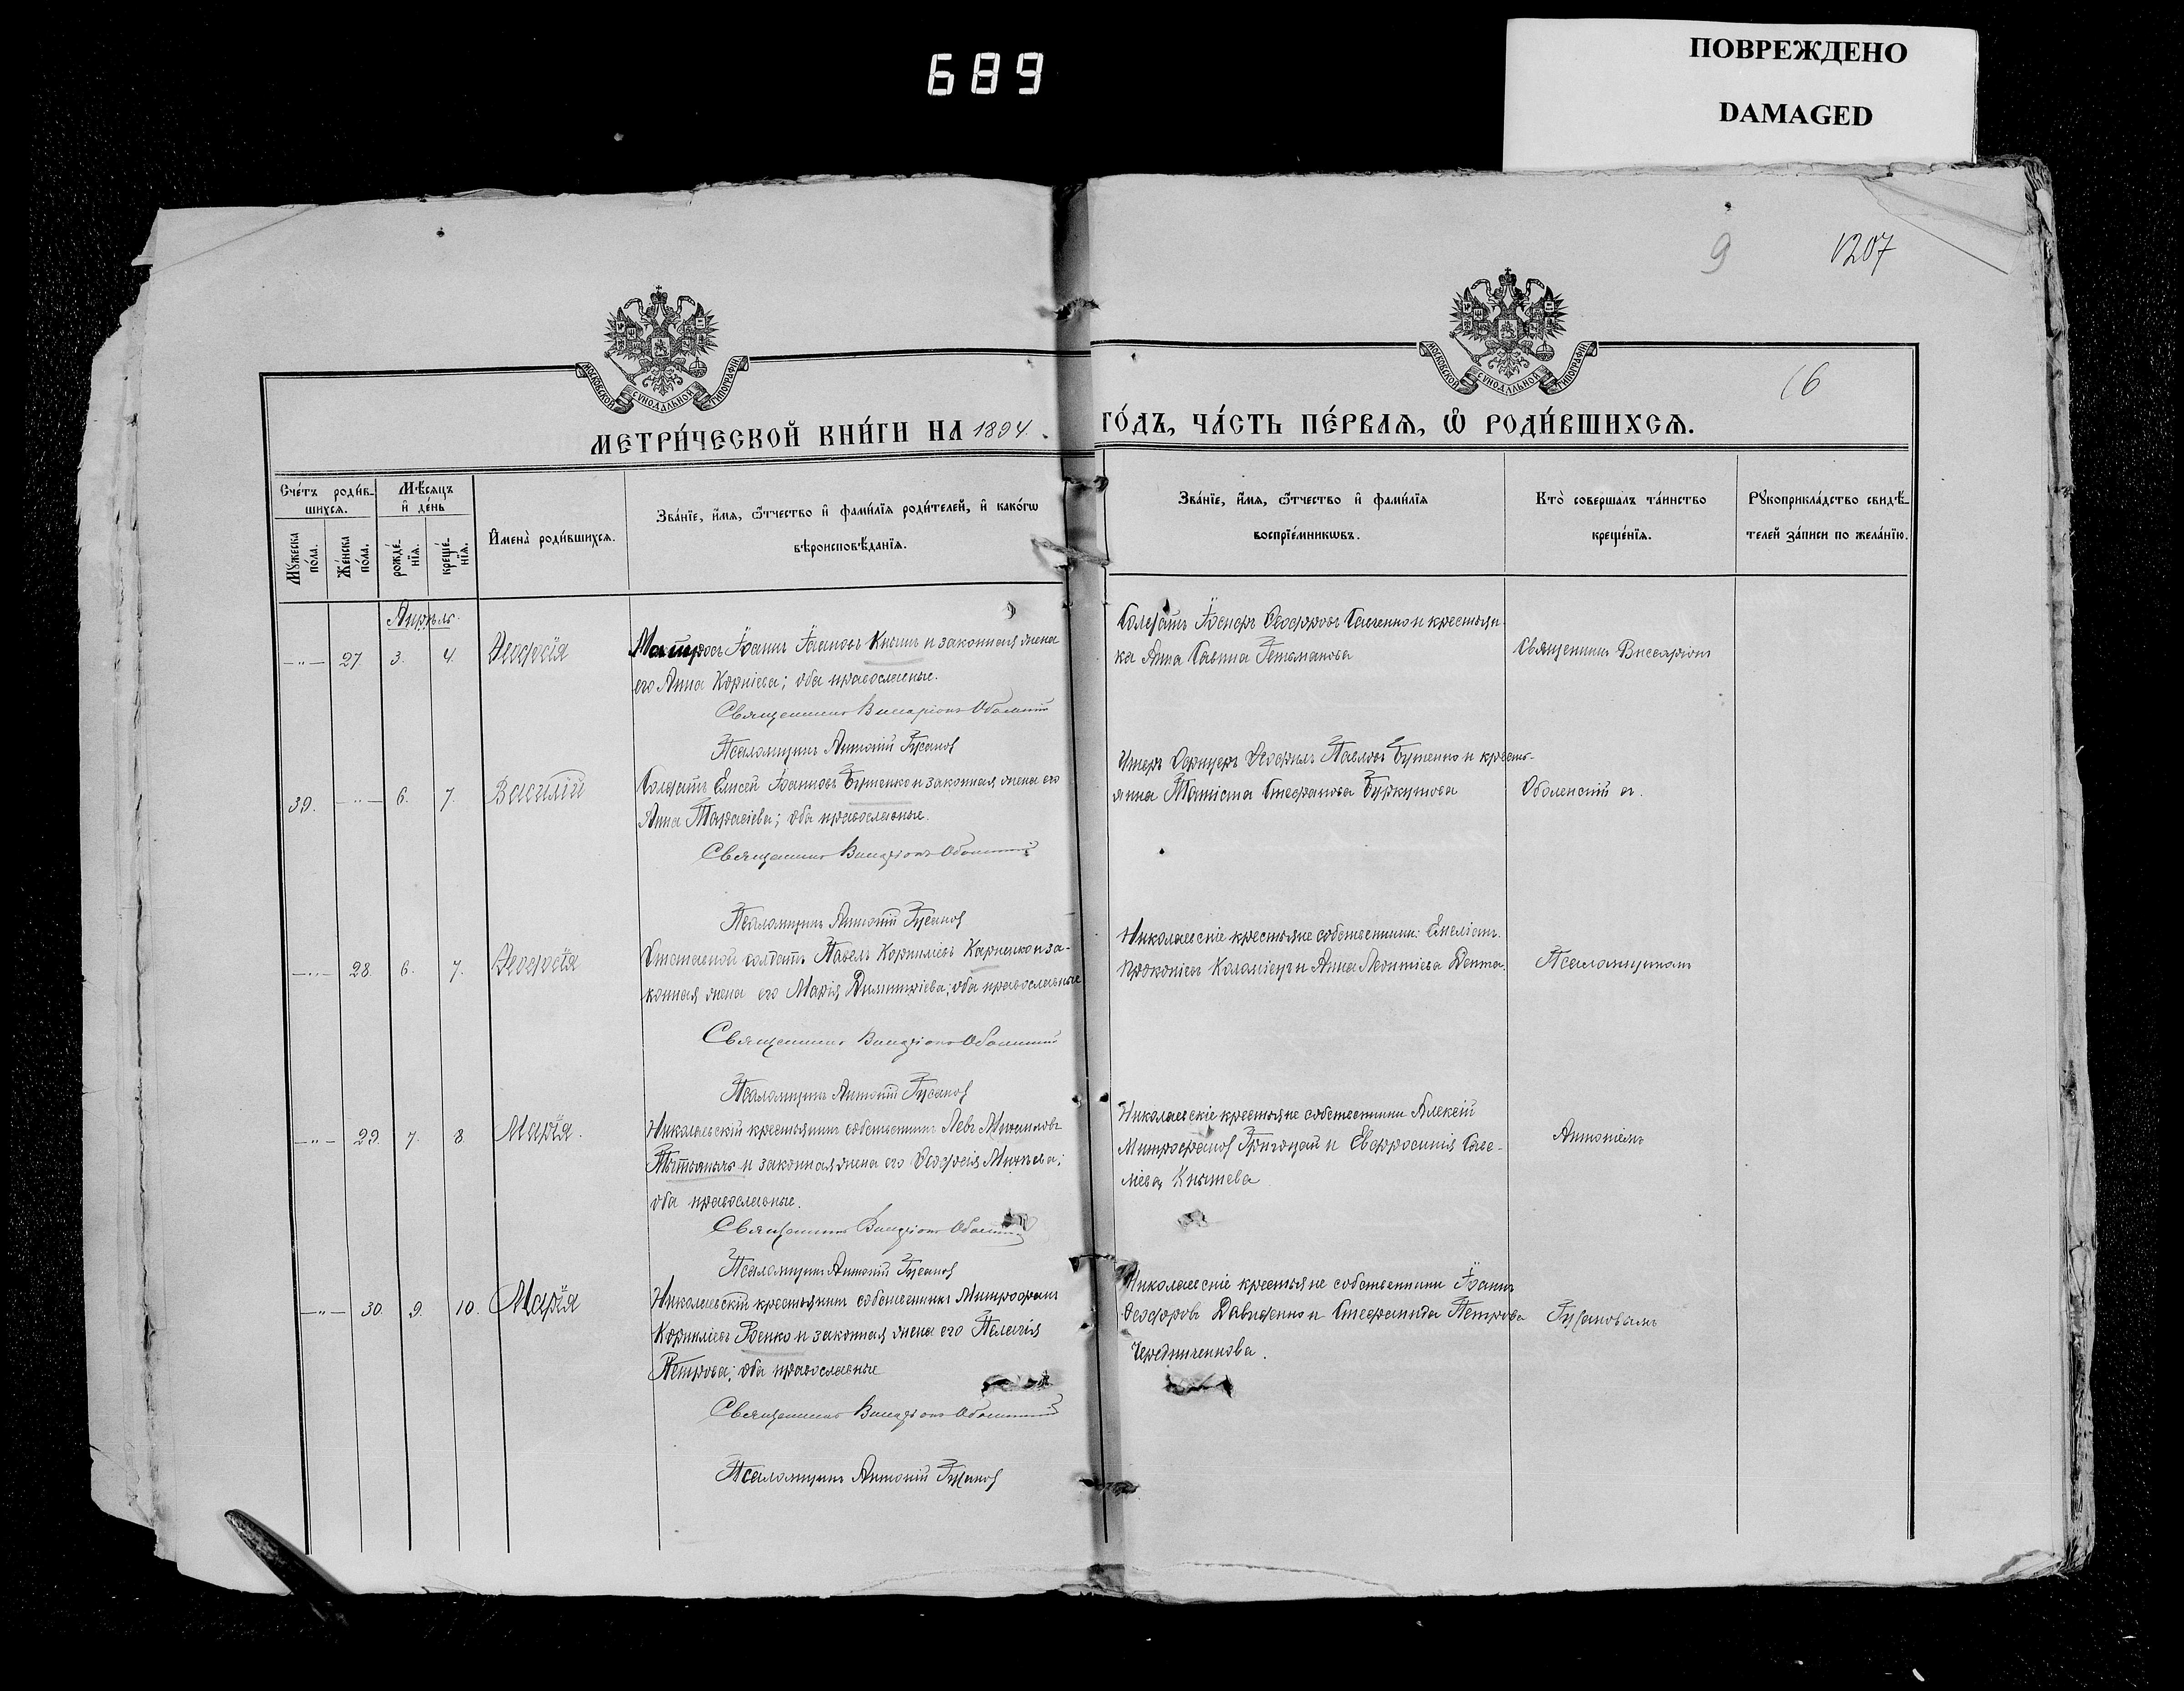 689
ПОВРЕЖДЕНО
DAMAGED
9
1207
16
МОСКОВСКОЙ СѴНОДАЛЬНОЙ ТИПОГРАФІИ
МОСКОВСКОЙ СѴНОДАЛЬНОЙ ТИПОГРАФІИ
МЕТРИ́ЧЕСКОЙ КНИ́ГИ НА 1894
ГО́ДЪ, ЧА́СТЬ ПЕ́РВАЯ, Ѡ҆ РОДИ́ВШИХСЯ.
Сче́тъ роди́в-
шихся.
Мꙋ́жеска по́ла.
Же́нска по́ла.
Мѣ́сяцъ
и҆ де́нь
рожде́-
нїя.
креще́-
нїя.
И҆мена̀ роди́вшихся.
Зва́нїе, и҆́мя, ѻ҆́тчество и҆ фами́лїя роди́телей, и҆ како́гѡ
вѣроисповѣ́данїя.
Зва́нїе, и҆́мя, ѻ҆́тчество и҆ фами́лїя
воспрїе́мникѡвъ.
Кто̀ соверша́лъ та́инство
креще́нїя.
Рꙋкоприкла́дство свидѣ́-
телей за́писи по жела́нїю.
Апрѣль.
—"— 27. 3. 4. Ѳеодосія
Матросъ Іоаннъ Іоанновъ Кнышъ и законная жена
его Анна Корніева; оба православные.
Священникъ Виссаріонъ Оболенскій
Псаломщикъ Антоній Гусановъ
Солдатъ Іосифъ Ѳеодоровъ и крестьян-
ка Анна Саввина Гетьманова
Священникъ Виссаріонъ
39. —"— 6. 7. Василій
Солдатъ Елисей Іоанновъ Бутенко и законная жена его
Анна Тарасіева; оба православные.
Священникъ Виссаріонъ Оболенскій
Псаломщикъ Антоній Гусановъ
Унтеръ Офицеръ Ѳеофилъ Павловъ Бутенко и кресть-
янка Татіана Стефанова Буркутова
Оболенскій съ
—"— 28. 6. 7. Ѳеодосія
Отставной солдатъ Павелъ Корниліевъ Карпенко и за-
конная жена его Марія Димитріева; оба православные
Священникъ Виссаріонъ Оболенскій
Псаломщикъ Антоній Гусановъ
Николаевскіе крестьяне собственники: Емеліанъ
Прокопіевъ Коломіецъ и Анна Леонтіева Депта.
Псаломщикомъ
—"— 29. 7. 8. Марія.
Николаевскій крестьянинъ собственникъ Левъ Михаиловъ
и законная жена его Ѳеодосія Минаева;
оба православные.
Священникъ Виссаріонъ Оболенскій
Псаломщикъ Антоній Гусановъ
Николаевскіе крестьяне собственники Алексій
Митрофановъ Григоцай и Евфросинія Саве-
ліева Кнышева
Антоніемъ
—"— 30. 9. 10. Марія
Николаевскій крестьянинъ собственникъ Митрофанъ
Корниліевъ Роенко и законная жена его Пелагія
Петрова; оба православные
Священникъ Виссаріонъ Оболенскій
Псаломщикъ Антоній Гусановъ
Николаевскіе крестьяне собственники Іоаннъ
Ѳеодоровъ Давиденко и Стефанида Петрова
Чередниченкова.
Гусановымъ